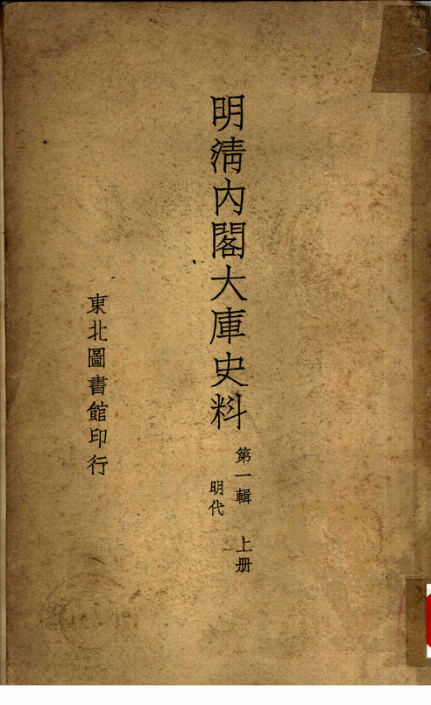 明清內閣大庫史料
第一輯 上册
明代
東北圖書館印行